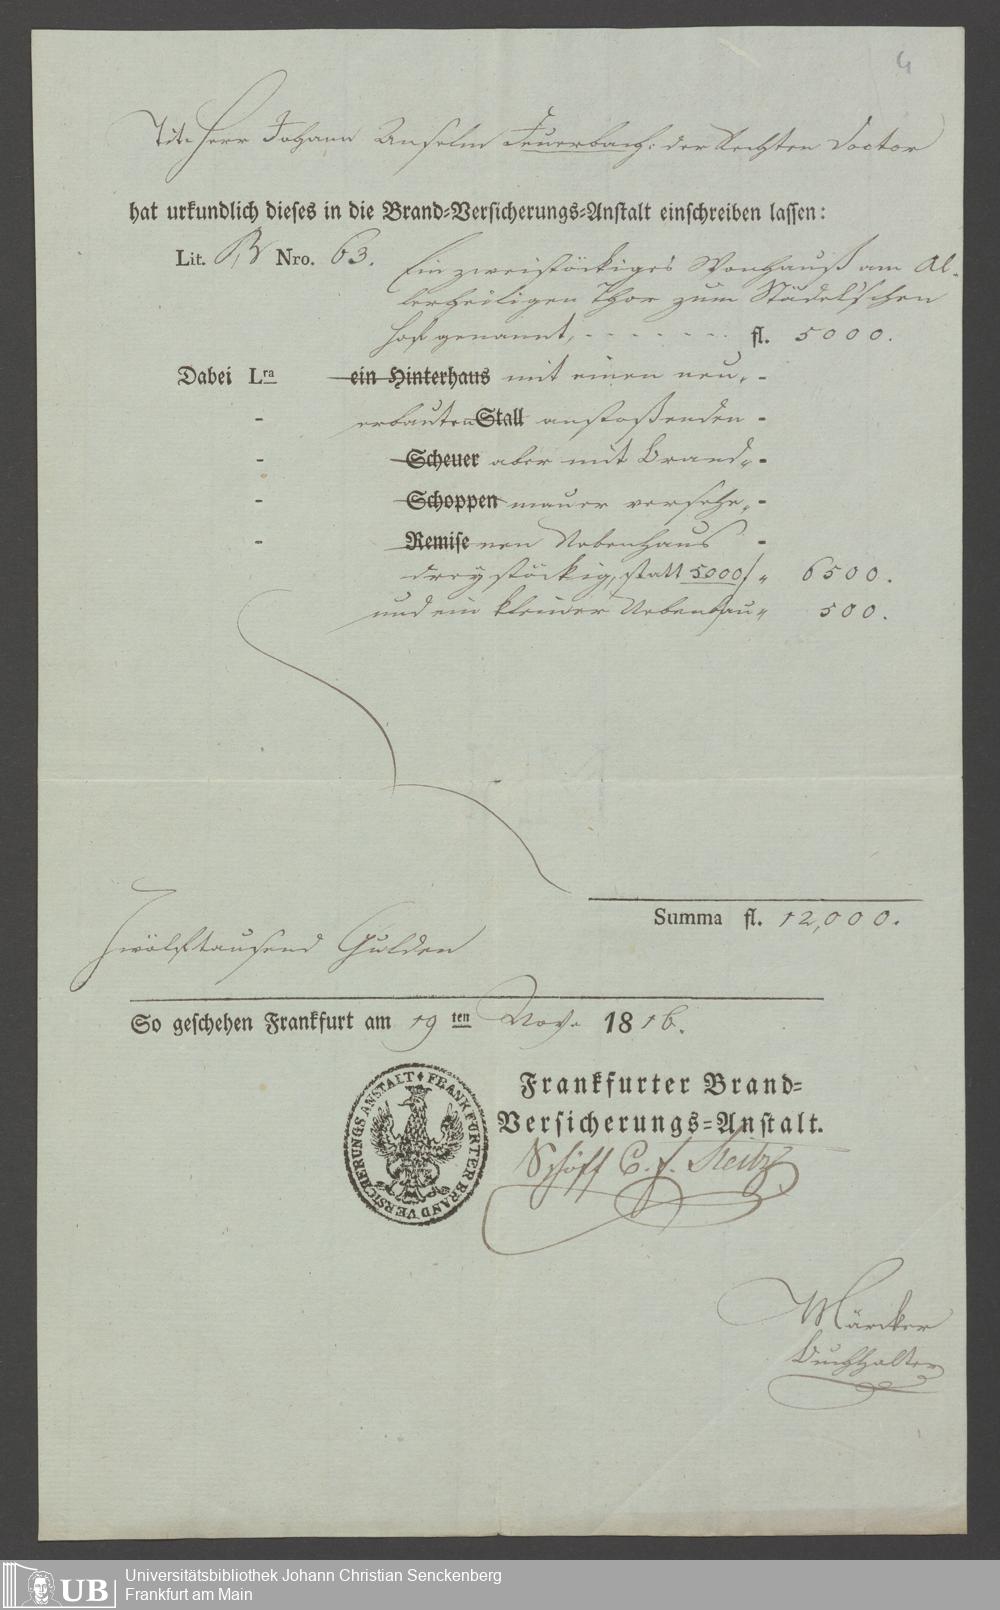 4
Tit. Herr Johann Anselm Feuerbach: der Rechten Doctor
hat urkundlich dieses in die Brand-Versicherungs-Anstalt einschreiben lassen:
Lit. B, Nro. 63. Ein zweistöckiges Wonhauß am Al-
lerheiligen Thor zum Städel'schen
Hof genannt, - - - - - - - fl. 5000.
Dabei Lra ein Hinterhaus mit einen neu„ -
- erbauten Stall anstoßenden -
- Scheuer aber mit Brand„ -
- Schoppen mauer versehe„ -
- Remise nen Nebenhaus -
dreystöckig, statt 5000/ „ 6500.
und ein kleiner Nebenbau „ 500.
Summa fl. 12,000.
Zwölftausend Gulden
So geschehen Frankfurt am 19ten Nov. 1816.
FRANKFURTER BRAND VERSICHERUNGS ANSTALT
Frankfurter Brand-
Versicherungs-Anstalt.
Schöff C. F. Steitz
Märcker
Buchhalter
UB
Universitätsbibliothek Johann Christian Senckenberg
Frankfurt am Main